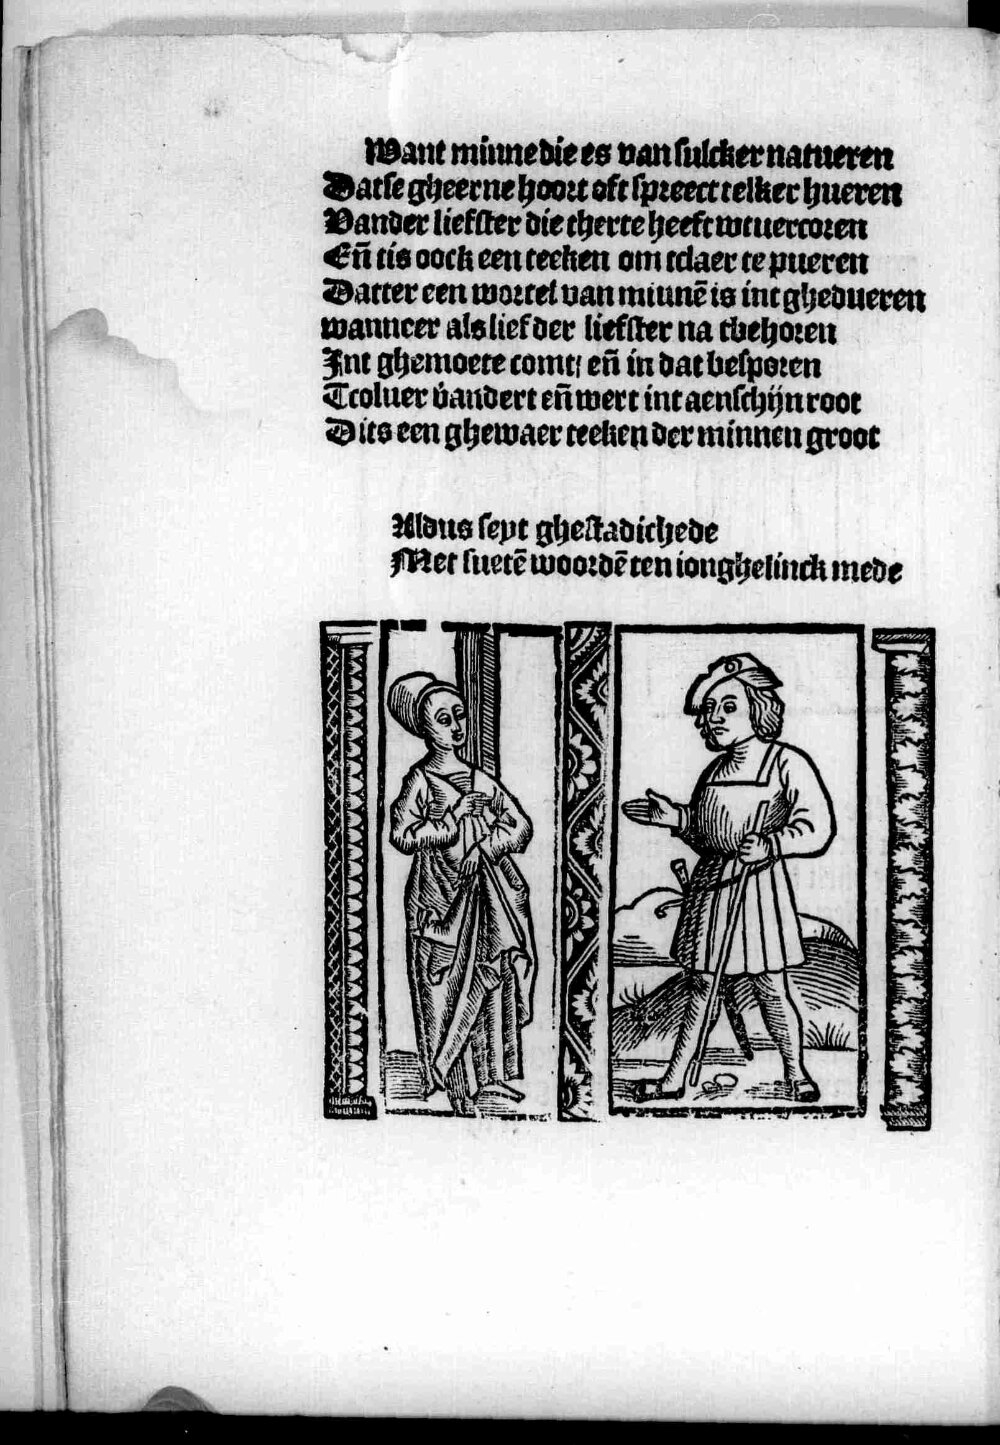 Want minne die es van sulcker natueren
Datse gheerne hoort oft spreect telker hueren
Vander liefster die therte heeft wtuercoren
Eñ tis oock een teeken om tclaer te pueren
Datter een wortel van minnē is int ghedueren
wanneer als lief der liefster na tbehoren
Int ghemoete comt/ eñ in dat besporen
Tcoluer v̄andert eñ wert int aenschijn root
Dits een ghewaer teeken der minnen groot
Aldus seyt ghestadichede
Met suetē woordē ten ionghelinck mede